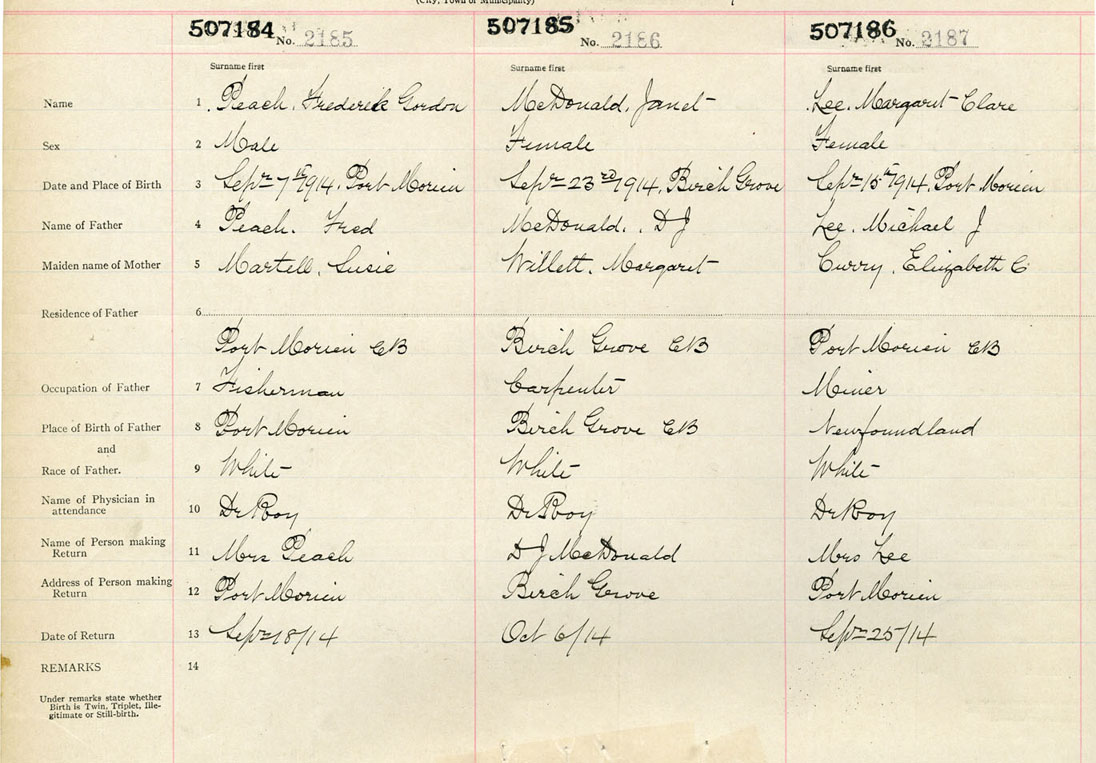 (City, Town or Municipality)
507184 No. 2185 507185 No. 2186 507186 No. 2187
Surname first Surname first Surname first
Name 1 Peach, Frederick Gordon McDonald, Janet Lee, Margaret Clare
Sex 2 Male Female Female
Date and Place of Birth 3 Sepr 7th 1914, Port Morien Sepr 23rd 1914, Birch Grove Sepr 15th 1914, Port Morien
Name of Father 4 Peach. Fred McDonald, D J Lee, Michael J
Maiden name of Mother 5 Martell, Susie Willett, Margaret Curry, Elizabeth C
Residence of Father 6
Port Morien CB Birch Grove CB Port Morien CB
Occupation of Father 7 Fisherman Carpenter Miner
Place of Birth of Father 8 Port Morien Birch Grove CB Newfoundland
and
Race of Father. 9 White White White
Name of Physician in
attendance 10 Dr Roy Dr Roy Dr Roy
Name of Person making
Return 11 Mrs Peach D J McDonald Mrs Lee
Address of Person making
Return 12 Port Morien Birch Grove Port Morien
Date of Return 13 Sepr 18/14 Oct 6/14 Sepr 25/14
REMARKS 14
Under remarks state whether
Birth is Twin, Triplet, Ille-
gitimate or Still-birth.